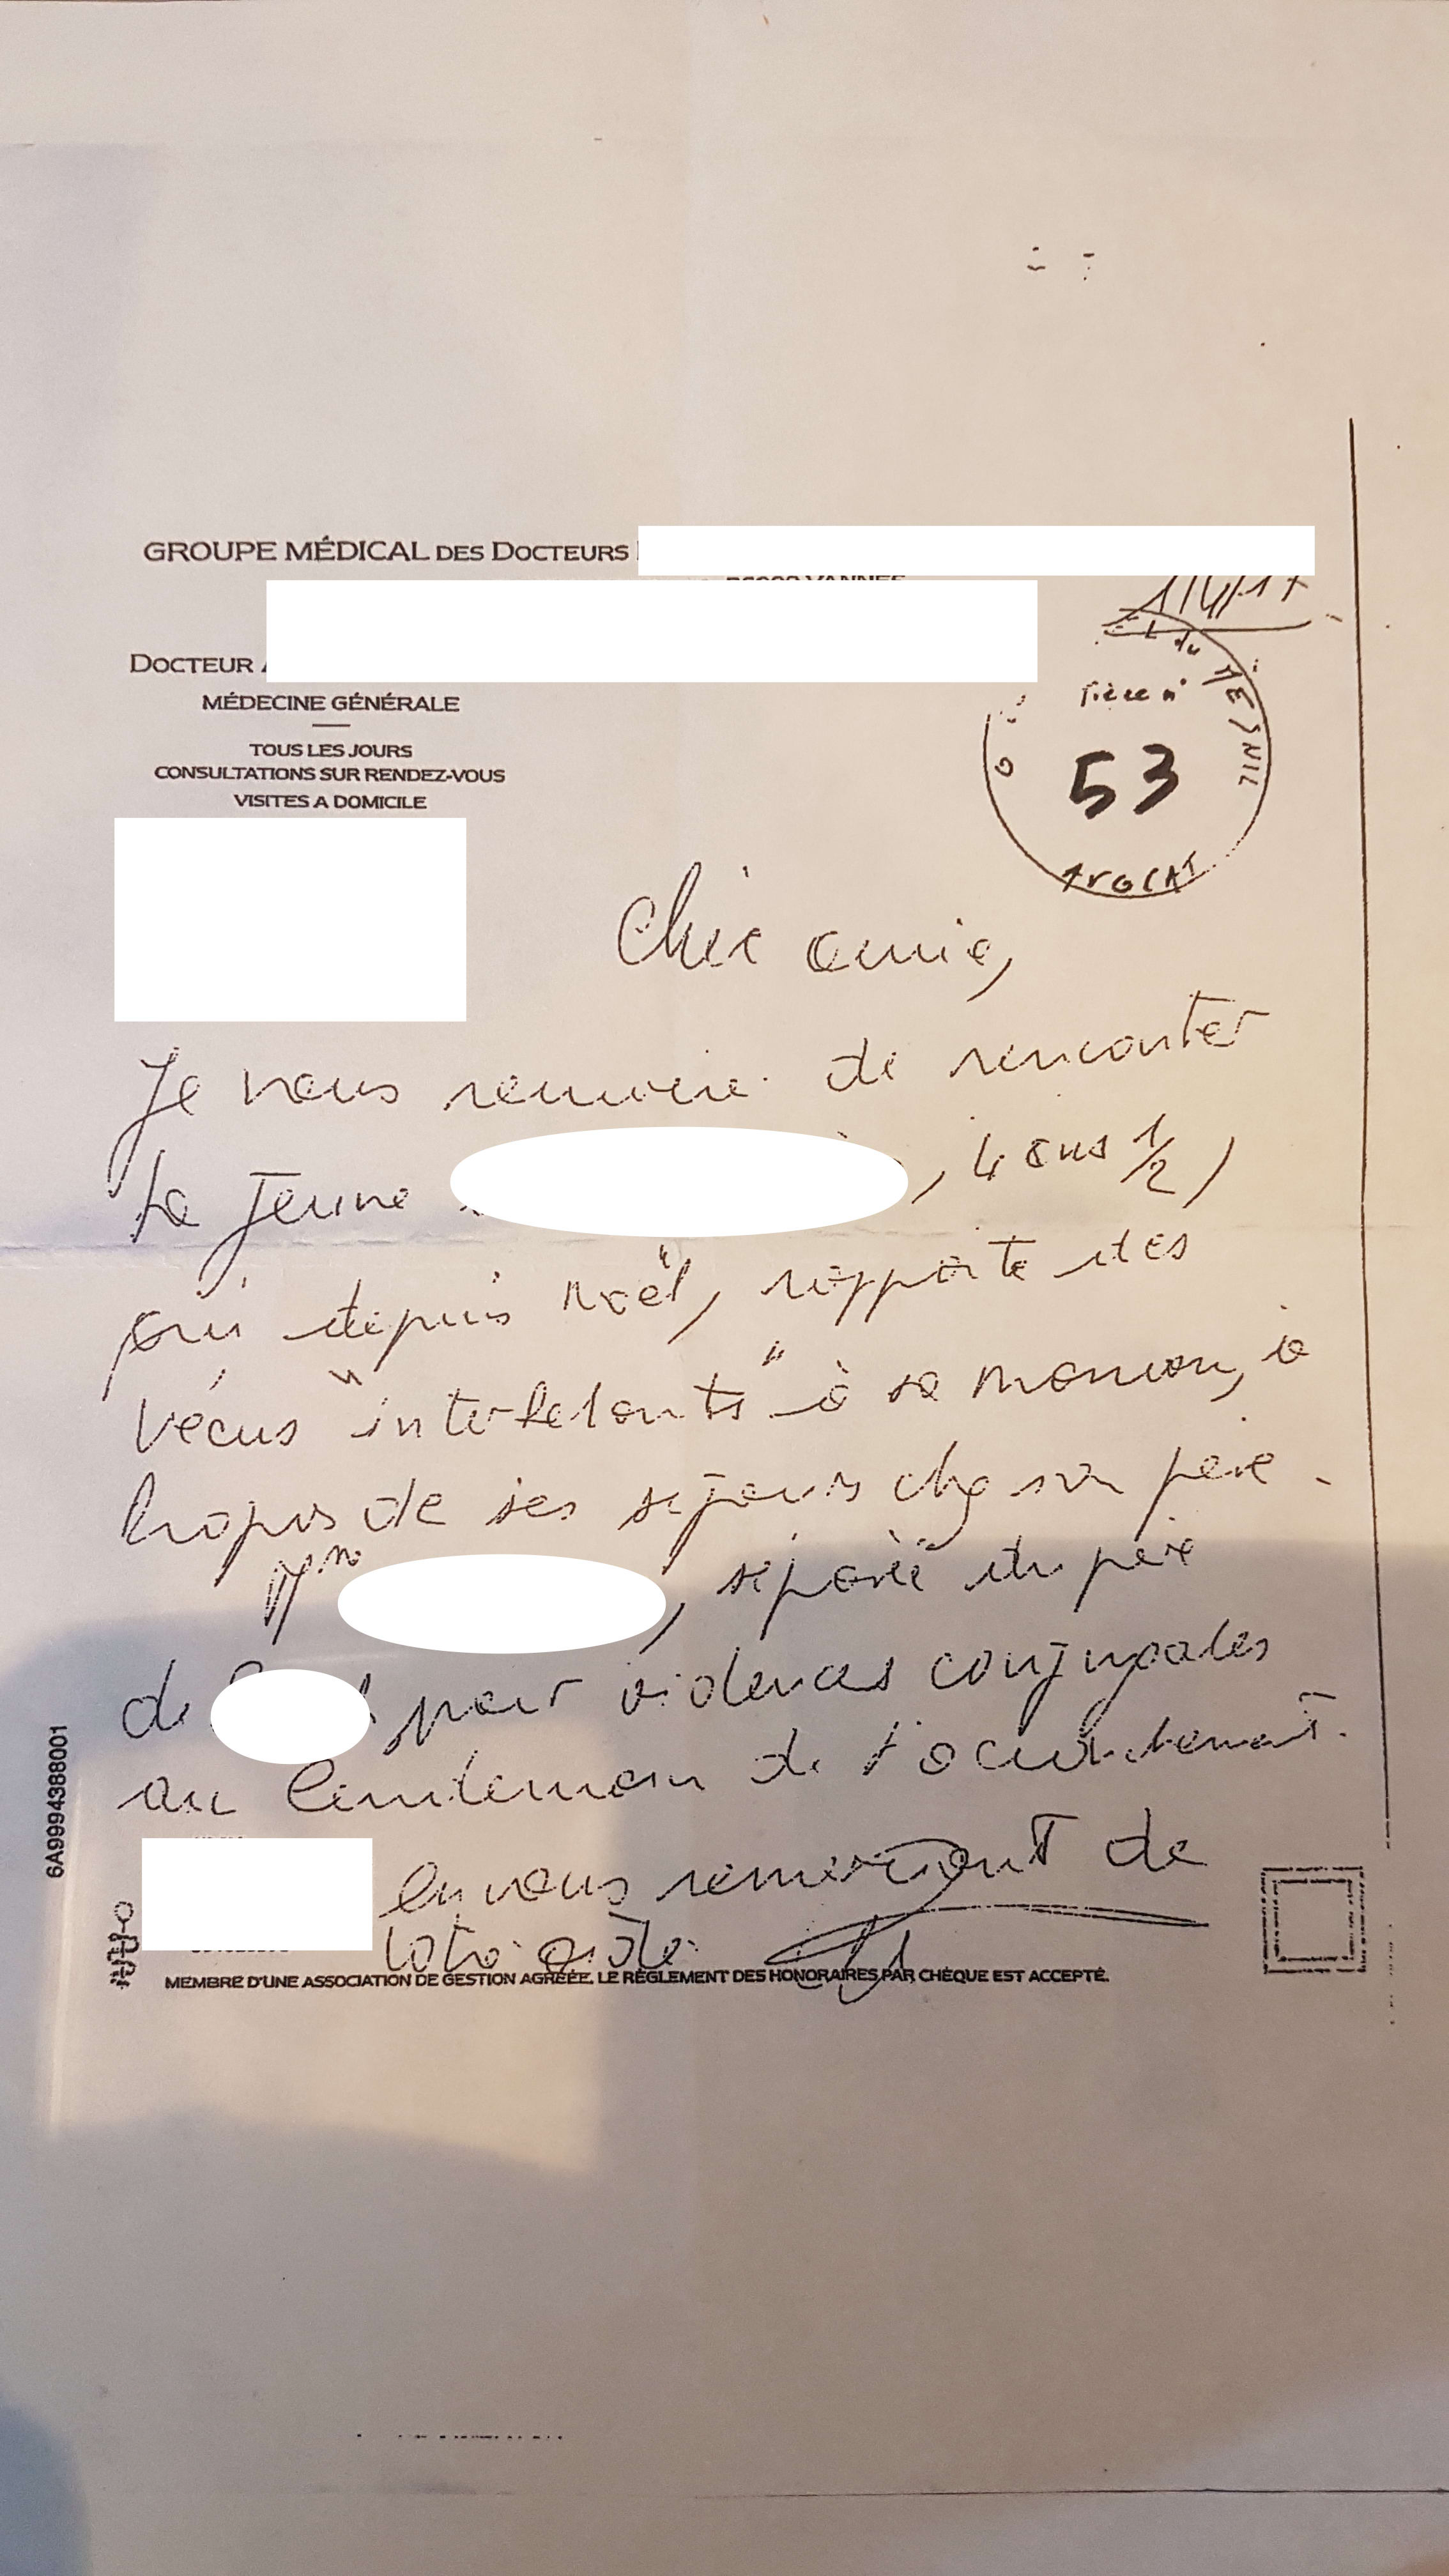 GROUPE MÉDICAL DES DOCTEURS
1/4/17
DOCTEUR
MÉDECINE GÉNÉRALE
TOUS LES JOURS
CONSULTATIONS SUR RENDEZ-VOUS
VISITES A DOMICILE
du MESNIL
Pièce n°
53
AVOCAT
Chère amie,
Je vous remercie de rencontrer
la jeune , 4 ans 1/2,
qui depuis Noël, rapporte des
vécus "interpelants" à sa maman, à
propos de ses séjours chez son père.
Mme , séparée du père
de pour violences conjugales
au lendemain de l'accouchement.
en vous remerciant de
votre aide
6A9994388001
MEMBRE D'UNE ASSOCIATION DE GESTION AGRÉÉE. LE RÈGLEMENT DES HONORAIRES PAR CHÈQUE EST ACCEPTÉ.